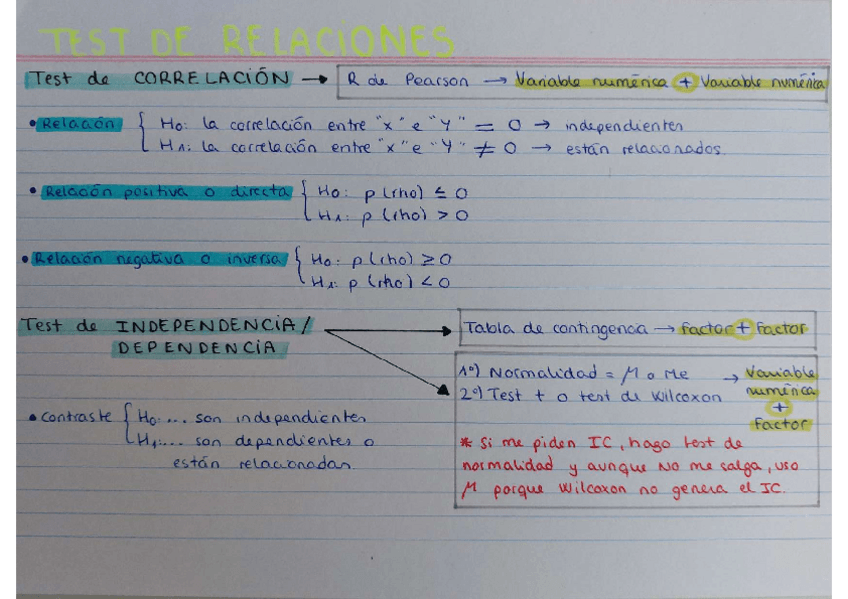 TEST DE RELACIONES
Test de CORRELACIÓN → R de Pearson → Variable numérica + Variable numérica
• Relación { H0: la correlación entre "x" e "Y" = 0 → independientes
H1: la correlación entre "x" e "Y" ≠ 0 → están relacionados
• Relación positiva o directa { H0: p (rho) ≤ 0
H1: p (rho) > 0
• Relación negativa o inversa { H0: p (rho) ≥ 0
H1: p (rho) < 0
Test de INDEPENDENCIA /
DEPENDENCIA
Tabla de contingencia → Factor + Factor
1º) Normalidad = μ o Me → Variable
numérica
2º) Test t o test de Wilcoxon
+
Factor
* Si me piden IC, hago test de
normalidad y aunque NO me salga, uso
μ porque Wilcoxon no genera el IC.
• Contraste { H0: ... son independientes
H1: ... son dependientes o
están relacionadas